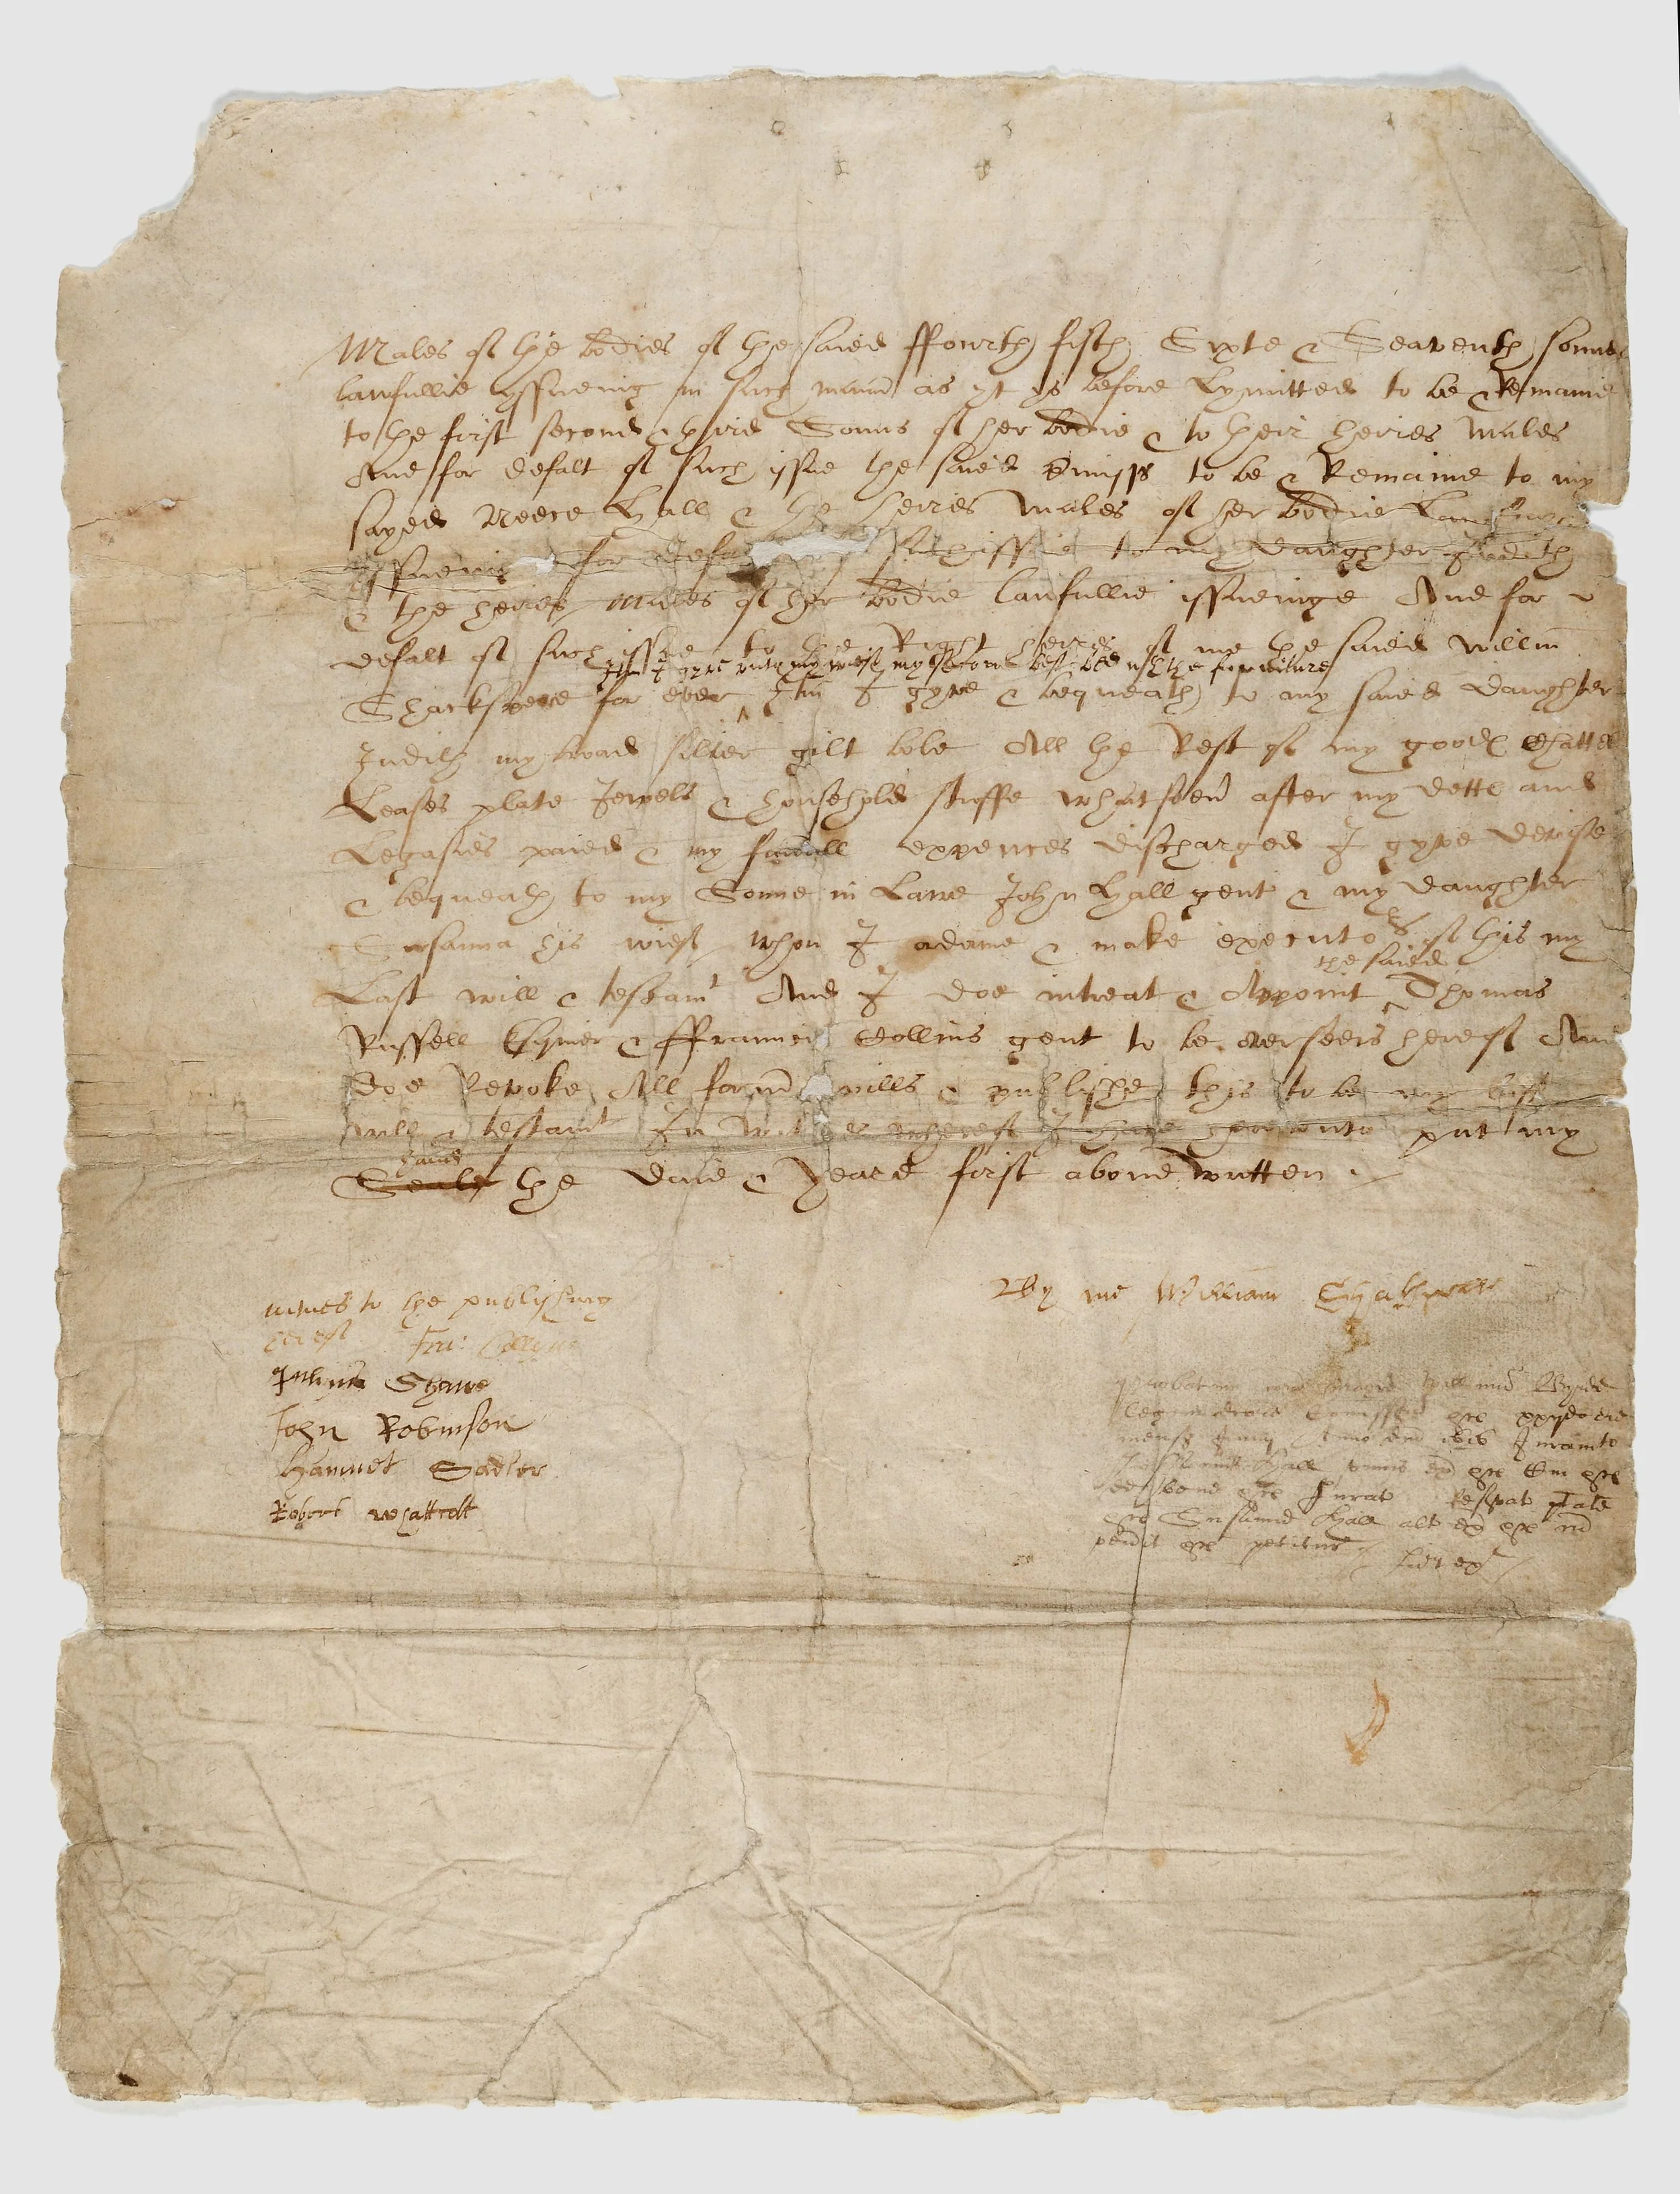 Males of the bodies of the saied ffourth fifth Sixte & Seaventh sonnes
lawfullie yssueing in such manner as yt ys before Lymitted to be & Remaine
to the first second & third Sonns of her bodie & to their heires Males
And for defalt of such issue the saied premisses to be & Remaine to my
sayed Neece Hall & the heires Males of her bodie Lawfully
yssueing for defa such issue to my daughter Judith
& the heires Males of her bodie lawfullie issueinge And for
defalt of such issue to the Right heires of me the saied willm
Itm I gyve unto my wief my second best bed wth the furniture
Shackspere for ever Itm I gyve & bequeath to my saied daughter
Judith my broad silver gilt bole All the Rest of my goodes Chattels
Leases plate Jewels & household stuffe whatsoever after my dettes and
Legasies paied & my funerall expences discharged I gyve devise
& bequeath to my Sonne in Lawe John Hall gent & my daughter
Susanna his wief whom I ordaine & make executors of this my
the saied
Last will & testamt And I doe intreat & Appoint Thomas
Russell Esquier & ffrauncis Collins gent to be overseers hereof And
doe Revoke All former wills & publishe this to be my last
will & testamt In witnes whereof I have hereunto put my
hand
Seale the daie & Yeare first above written
By me William Shakspeare
witnes to the publishing
hereof Fra: Collyns
Julius Shawe
John Robinson
Hamnet Sadler
Robert whattcott
Probatum Willim Byrde
legum xxijdo die
mensis Junij Anno dni 1616 Juramto
Hall
Jurat
Susanne Hall alt
petitur